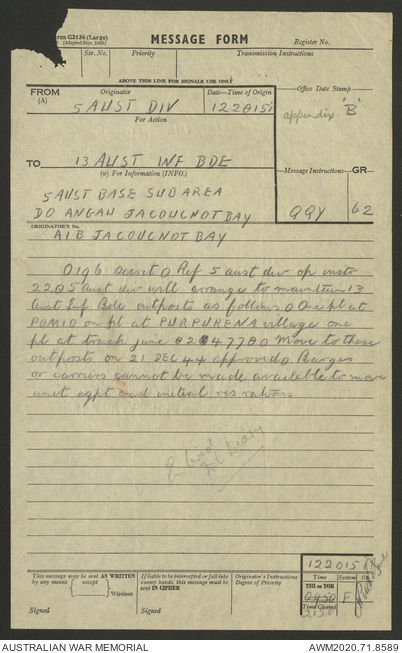 Form G2136 (Large)
(Adapted Sept. 1943)
MESSAGE FORM
Register No.
Ser. No.
Priority
Transmission Instructions
ABOVE THIS LINE FOR SIGNALS USE ONLY
FROM
(A)
Originator
5 AUST DIV
Date—Time of Origin
122015
Office Date Stamp
appendix 'B'
For Action
TO
13 AUST INF BDE
(w) For Information (INFO.)
Message Instructions
GR
5 AUST BASE SUB AREA
QQY
62
DO ANGAU JACQUINOT BAY
ORIGINATOR'S No.
AIB JACQUINOT BAY
O196 secret O Ref 5 aust div op instr
22 O 5 Aust div will arrange to maintain 13
Aust Inf Bde outposts as follows O One pl at
POMIO on pl at PURPURENA village one
pl at track junc 82 477 O Move to these
outposts on 21 DEC 44 approved O Barges
or carriers cannot be made available to move
unit eqpt and initial res rations
Diary
122015
This message may be sent AS WRITTEN
by any means except Wireless
If liable to be intercepted or fall into
enemy hands, this message must be
sent IN CIPHER
Originator's Instructions
Degree of Priority
Time
System
Op.
THI or TOR
0450
F
Time Cleared
2130
Signed
Signed
AUSTRALIAN WAR MEMORIAL
AWM2020.71.8589